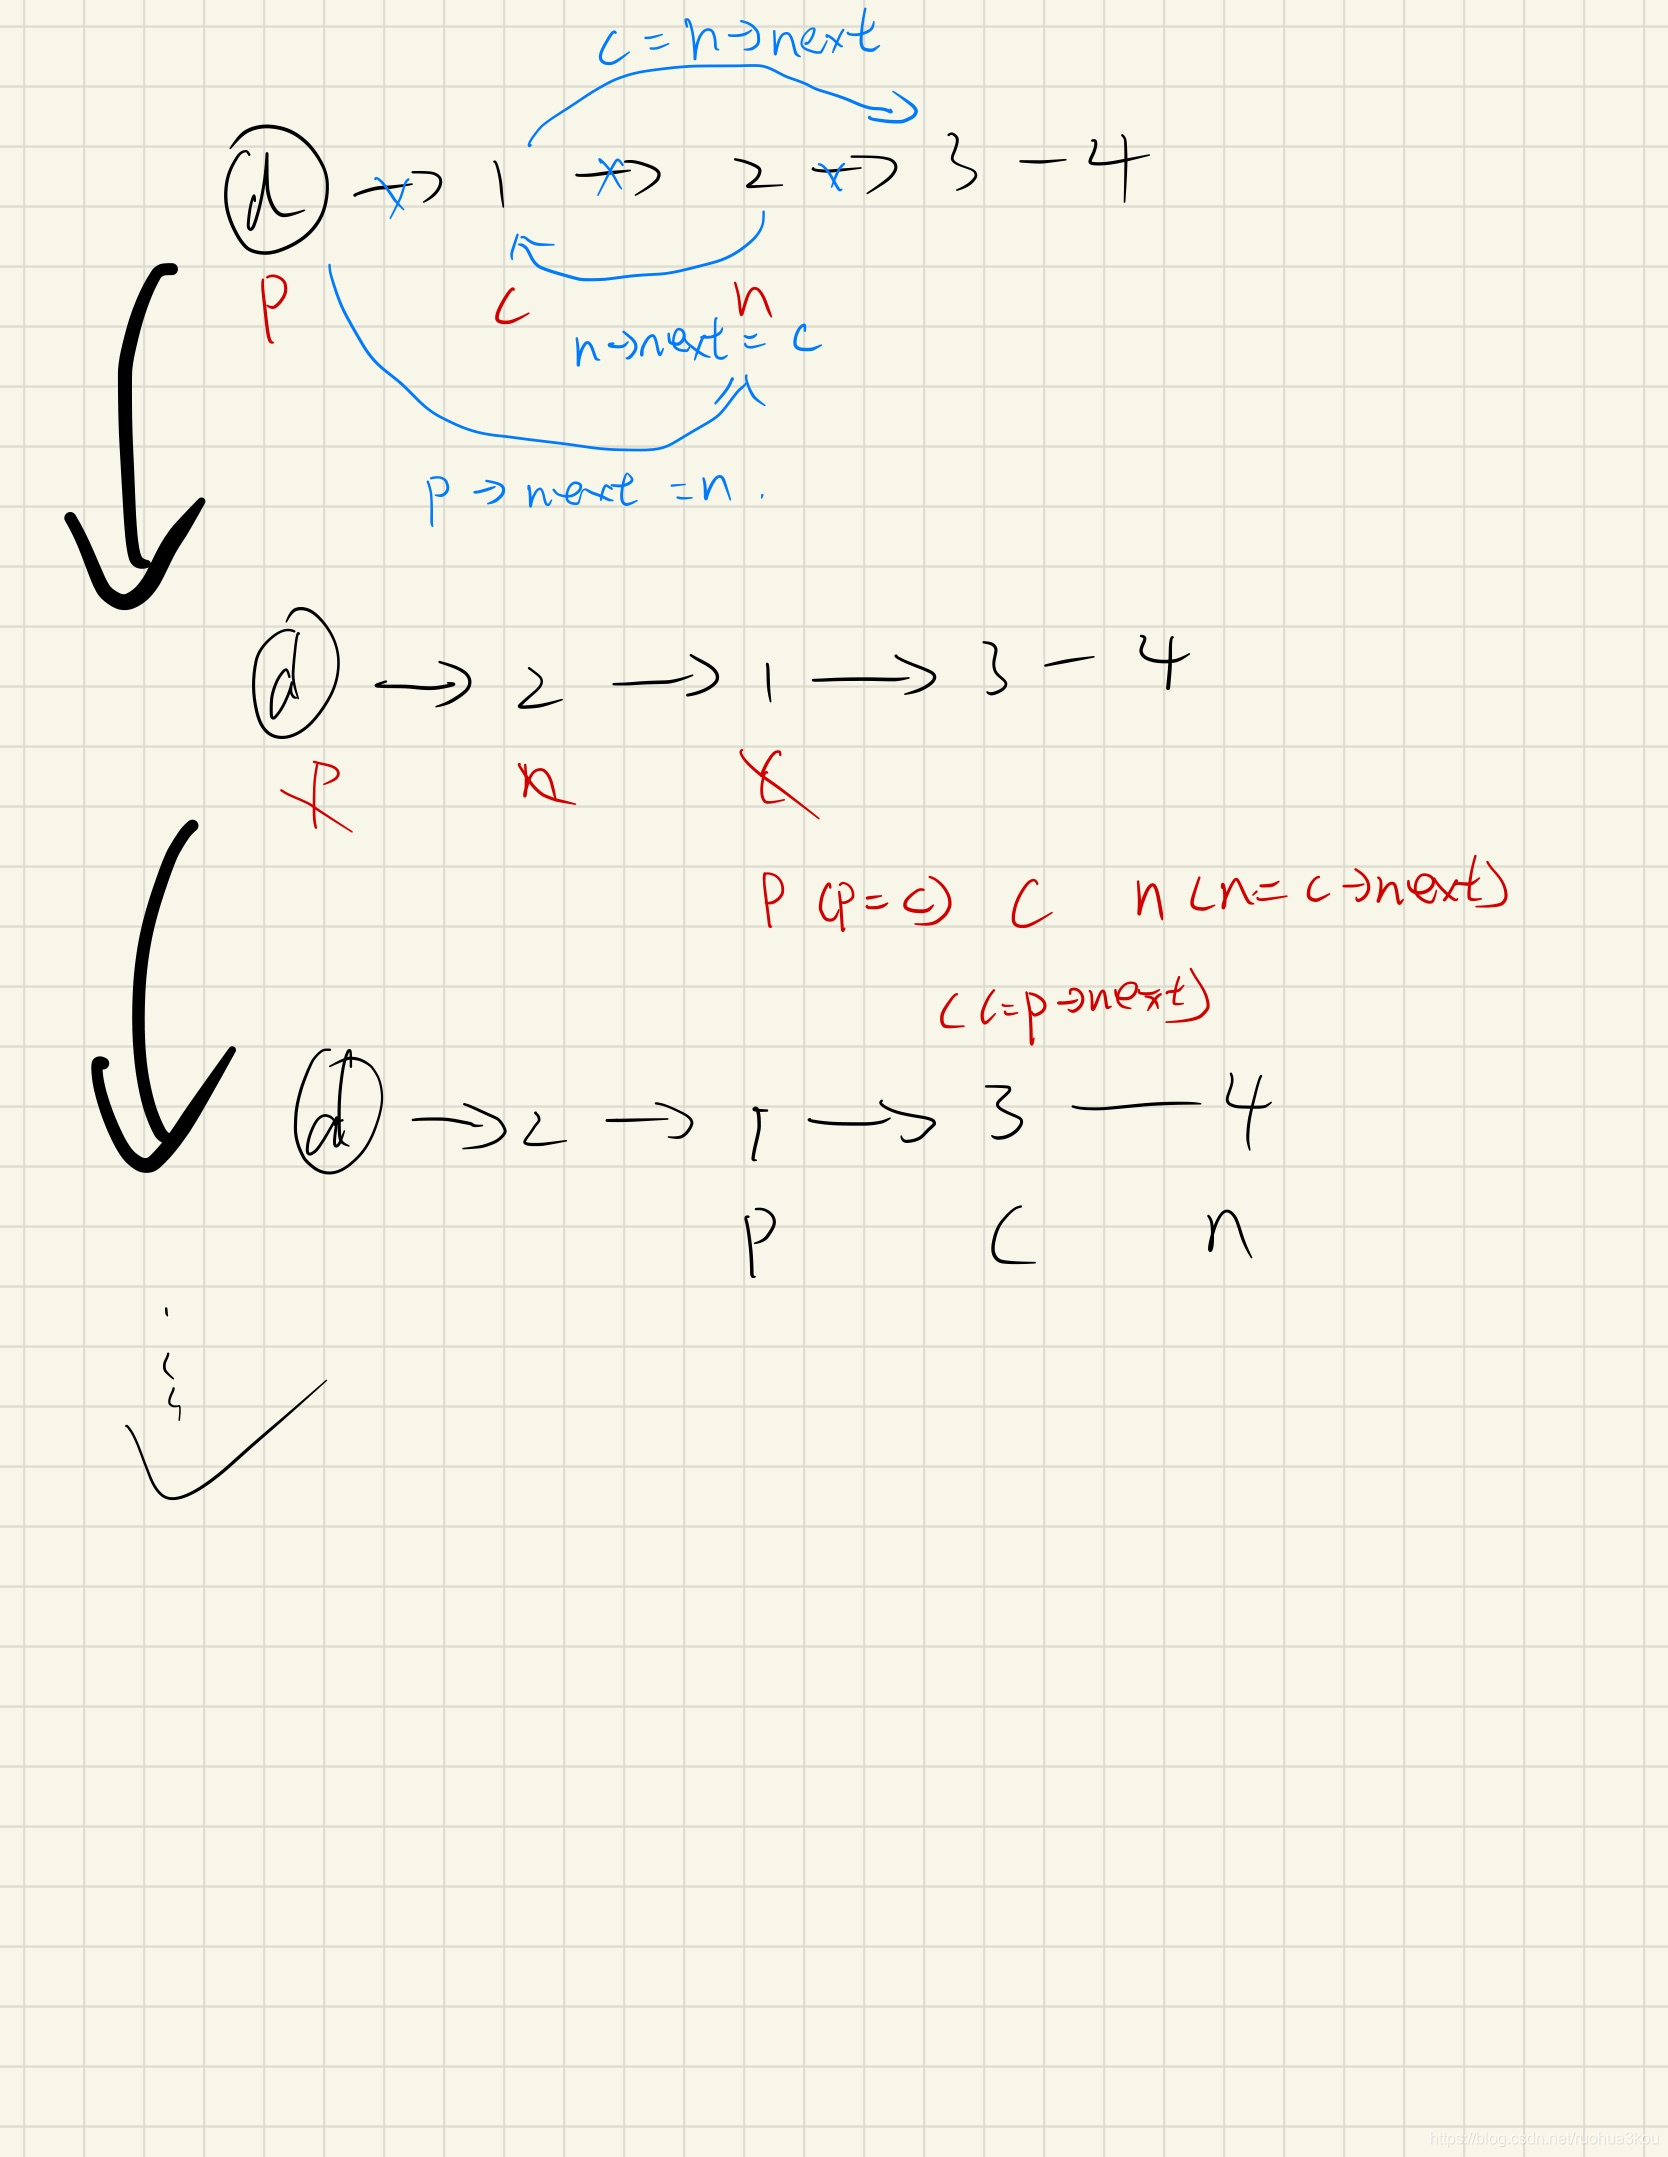 c = n→next
d → 1 → 2 → 3 — 4
p c n
n→next = c
p → next = n .
d → 2 → 1 → 3 — 4
p n c
p (p = c) c n (n = c→next)
(c=p→next)
d → 2 → 1 → 3 — 4
p c n
https://blog.csdn.net/ruohua3kou